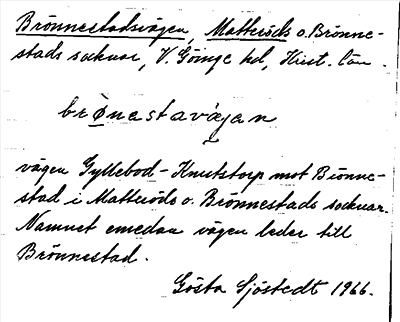 Brönnestadsvägen, Matteröds o. Brönne-
stads socknar, V. Göinge hd, Krist. län.
brö̀nestavä́gen
vägen Gyllebod - Knutstorp mot Brönne-
stad i Matteröds o. Brönnestads socknar.
Namnet emedan vägen leder till
Brönnestad.
Gösta Sjöstedt 1966.